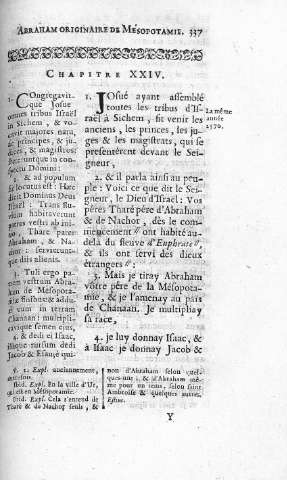 ABRAHAM ORIGINAIRE DE MESOPOTAMIE. 337
CHAPITRE XXIV.
1. Congregavit-
que Josue
omnes tribus Israël
in Sichem, & vo-
cavit majores natu,
& principes, & ju-
dices, & magistratus
conspe-
ctu Domini:
2. & ad populum
sic locutus est: Hæc
dicit Dominus Deus
Israël: Trans flu-
vium habitaverunt
patres vestri ab ini-
tio, Thare pater
Abraham, & Na-
chor: servierunt-
que diis alienis.
3. Tuli ergo pa-
trem vestrum Abra-
ham de Mesopota-
miæ finibus & addu-
xi eum in terram
Chanaan: multipli-
cavique semen ejus,
4. & dedi ei Isaac,
illique rursum dedi
Jacob & Esaü; qui-
1. Josué ayant assemblé
toutes les tribus d'Is-
raël à Sichem, fit venir les
anciens, les princes, les ju-
ges & les magistrats, qui se
presenterent devant le Sei-
gneur,
2. & il parla ainsi au peu-
ple : Voici ce que dit le Sei-
gneur, le Dieu d'Israël : Vos
pères Tharé père d'Abraham
& de Nachor, dès le com-
mencement ont habité au-
delà du fleuve d'Euphrate,
& ils ont servi des dieux
étrangers :
3. Mais je tiray Abraham
vôtre père de la Mésopota-
mie, & je l'amenay au païs
de Chanaan. Je multiplay
sa race,
4. je luy donnay Isaac, &
à Isaac je donnay Jacob &
La même
année
2570.
℣. 2. Expl. anciennement,
Ibid. Expl. En la ville d'Ur,
qui est en Mésopotamie.
Ibid. Expl. Cela s'entend de
Tharé & de Nachor seuls, &
non d'Abraham selon quel-
ques-uns ; & d'Abraham mê-
me pour un tems, selon saint
Ambroise & quelques autres.
Estius.
Y